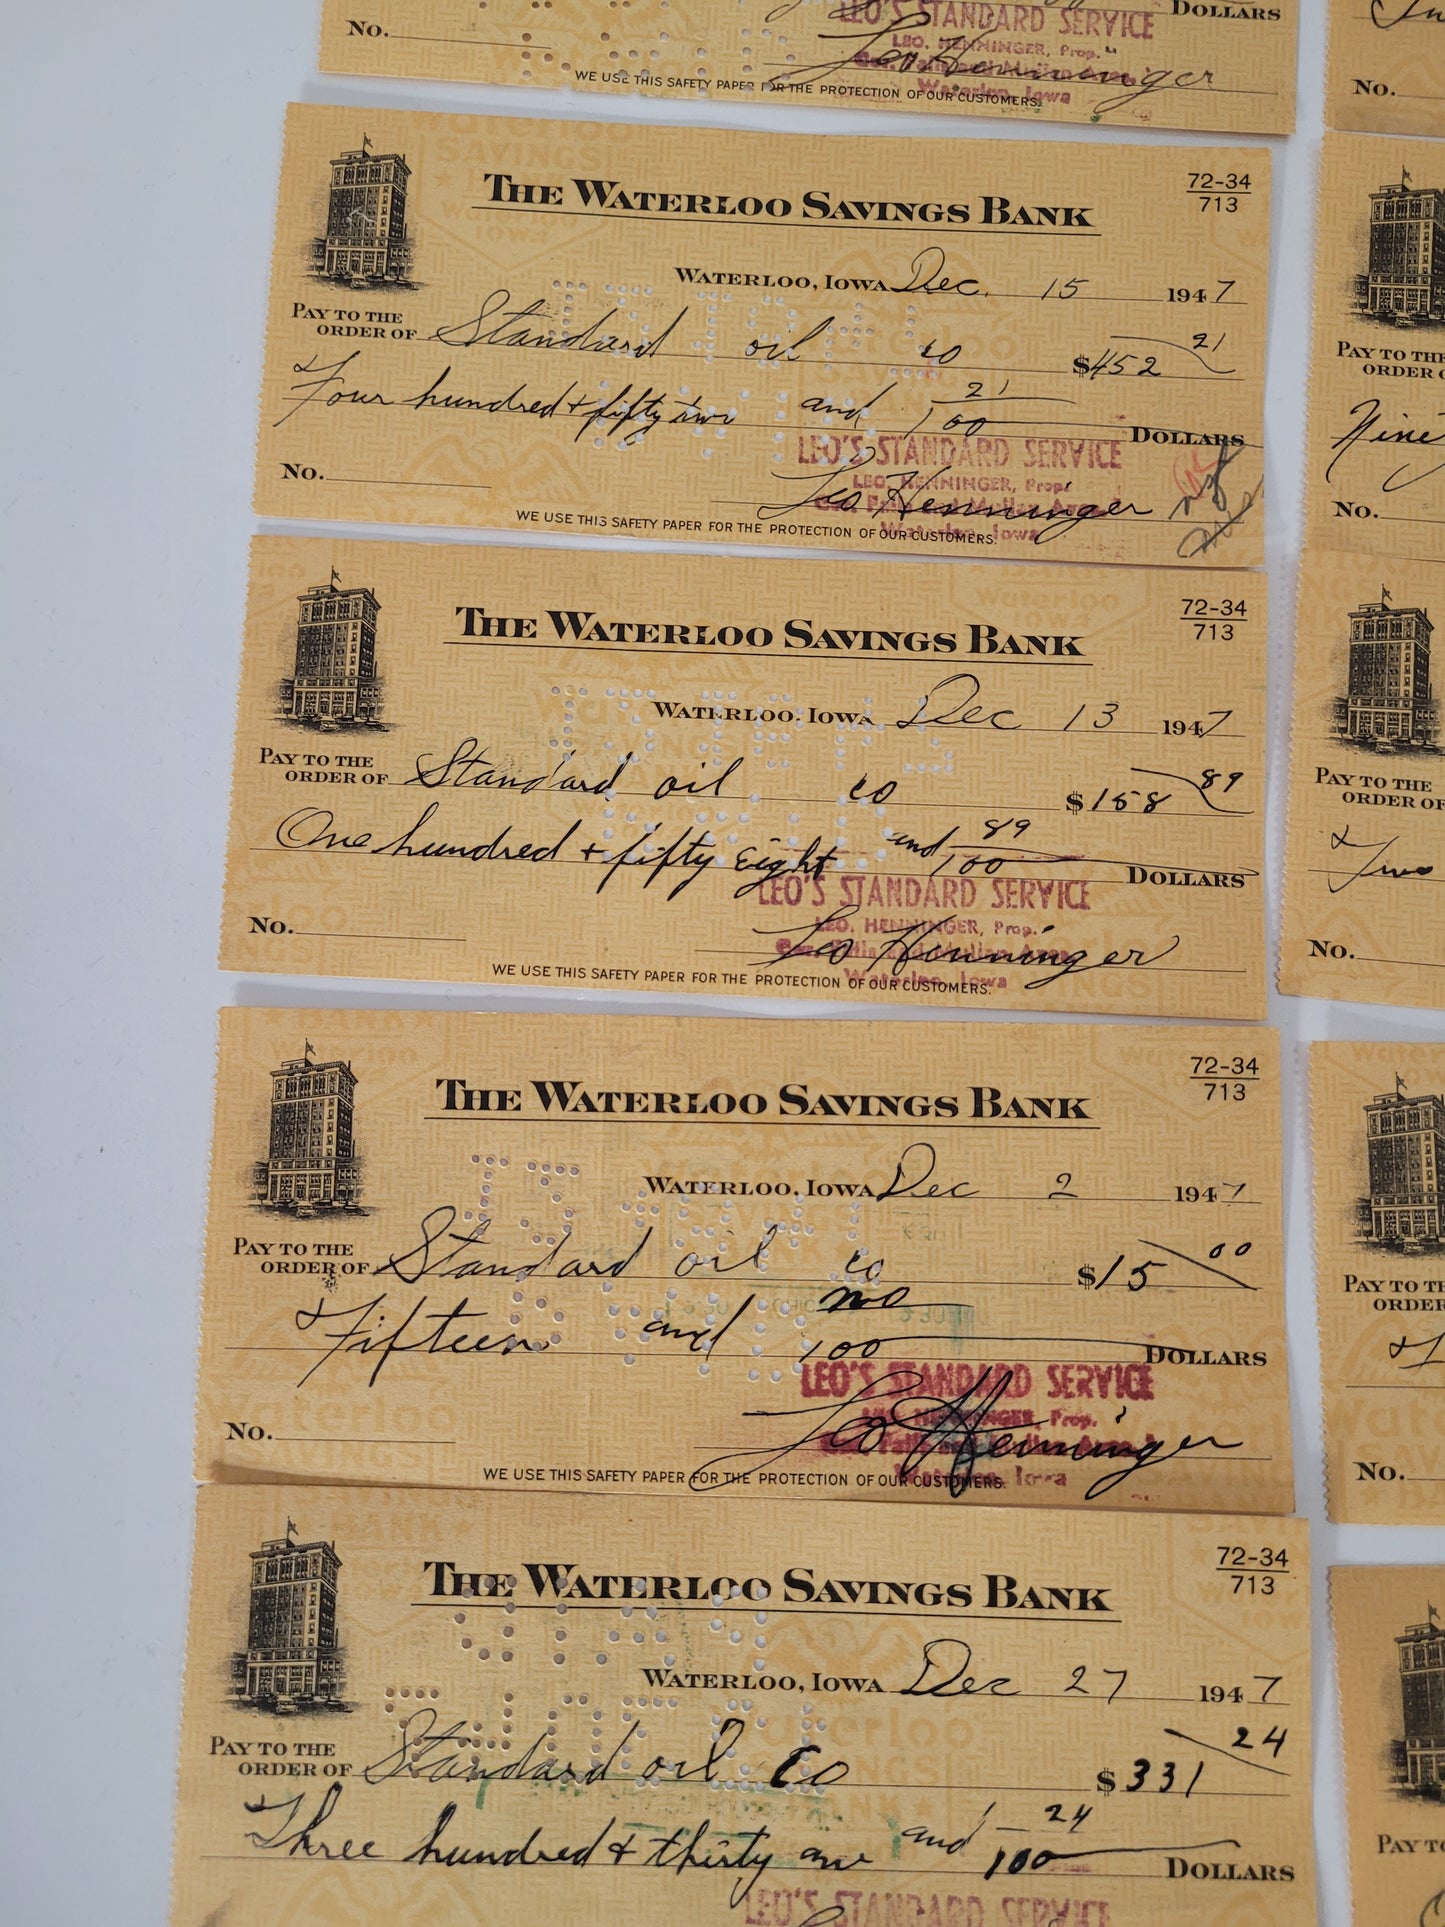 DOLLARS
LEO'S STANDARD SERVICE
LEO. HENNINGER, Prop.
No.
Leo Henninger
Waterloo, Iowa
WE USE THIS SAFETY PAPER FOR THE PROTECTION OF OUR CUSTOMERS.
No.
THE WATERLOO SAVINGS BANK
72-34
713
WATERLOO, IOWA Dec. 15 1947
PAY TO THE
ORDER OF Standard oil co $452 21
Four hundred + fifty two and 21/100 DOLLARS
LEO'S STANDARD SERVICE
LEO. HENNINGER, Prop.
No.
Leo Henninger
Waterloo, Iowa
WE USE THIS SAFETY PAPER FOR THE PROTECTION OF OUR CUSTOMERS.
PAY TO THE
ORDER
Nine
No.
THE WATERLOO SAVINGS BANK
72-34
713
WATERLOO, IOWA Dec 13 1947
PAY TO THE
ORDER OF Standard oil co $158 89
One hundred + fifty Eight and 89/100 DOLLARS
LEO'S STANDARD SERVICE
LEO. HENNINGER, Prop.
No.
Leo Henninger
Waterloo, Iowa
WE USE THIS SAFETY PAPER FOR THE PROTECTION OF OUR CUSTOMERS.
PAY TO THE
ORDER OF
Two
No.
THE WATERLOO SAVINGS BANK
72-34
713
WATERLOO, IOWA Dec 2 1947
PAY TO THE
ORDER OF Standard oil co $15 00
Fifteen and no/100 DOLLARS
LEO'S STANDARD SERVICE
LEO. HENNINGER, Prop.
No.
Leo Henninger
Waterloo, Iowa
WE USE THIS SAFETY PAPER FOR THE PROTECTION OF OUR CUSTOMERS.
PAY TO TH
ORDER
No.
THE WATERLOO SAVINGS BANK
72-34
713
WATERLOO, IOWA Dec 27 1947
PAY TO THE
ORDER OF Standard oil co $331 24
Three hundred + thirty one and 24/100 DOLLARS
LEO'S STANDARD SERVICE
PAY TO